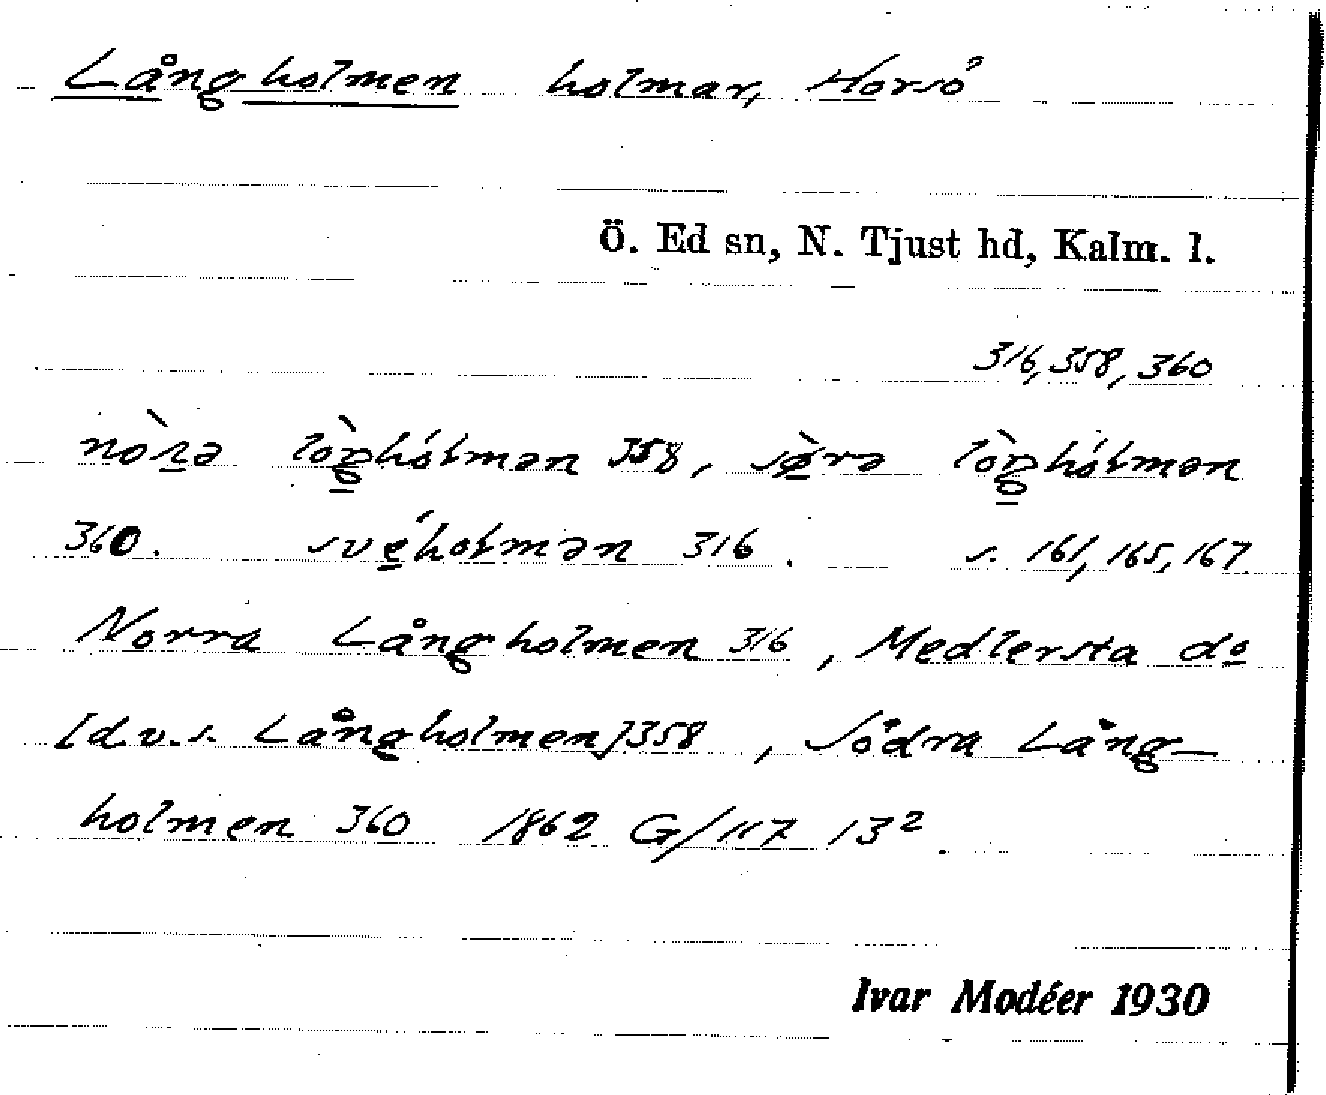 Långholmen holmar, Horsö
Ö. Ed sn, N. Tjust hd, Kalm. l.
316, 358, 360
nòra lòŋhólmən 358, sèrə lòŋhólmən
360. svéholmən 316. s. 161, 165, 167
Norra Långholmen 316, Medlersta dº
[d.v.s. Långholmen] 358, Södra Lång-
holmen 360 1862 G/117 13²
Ivar Modéer 1930